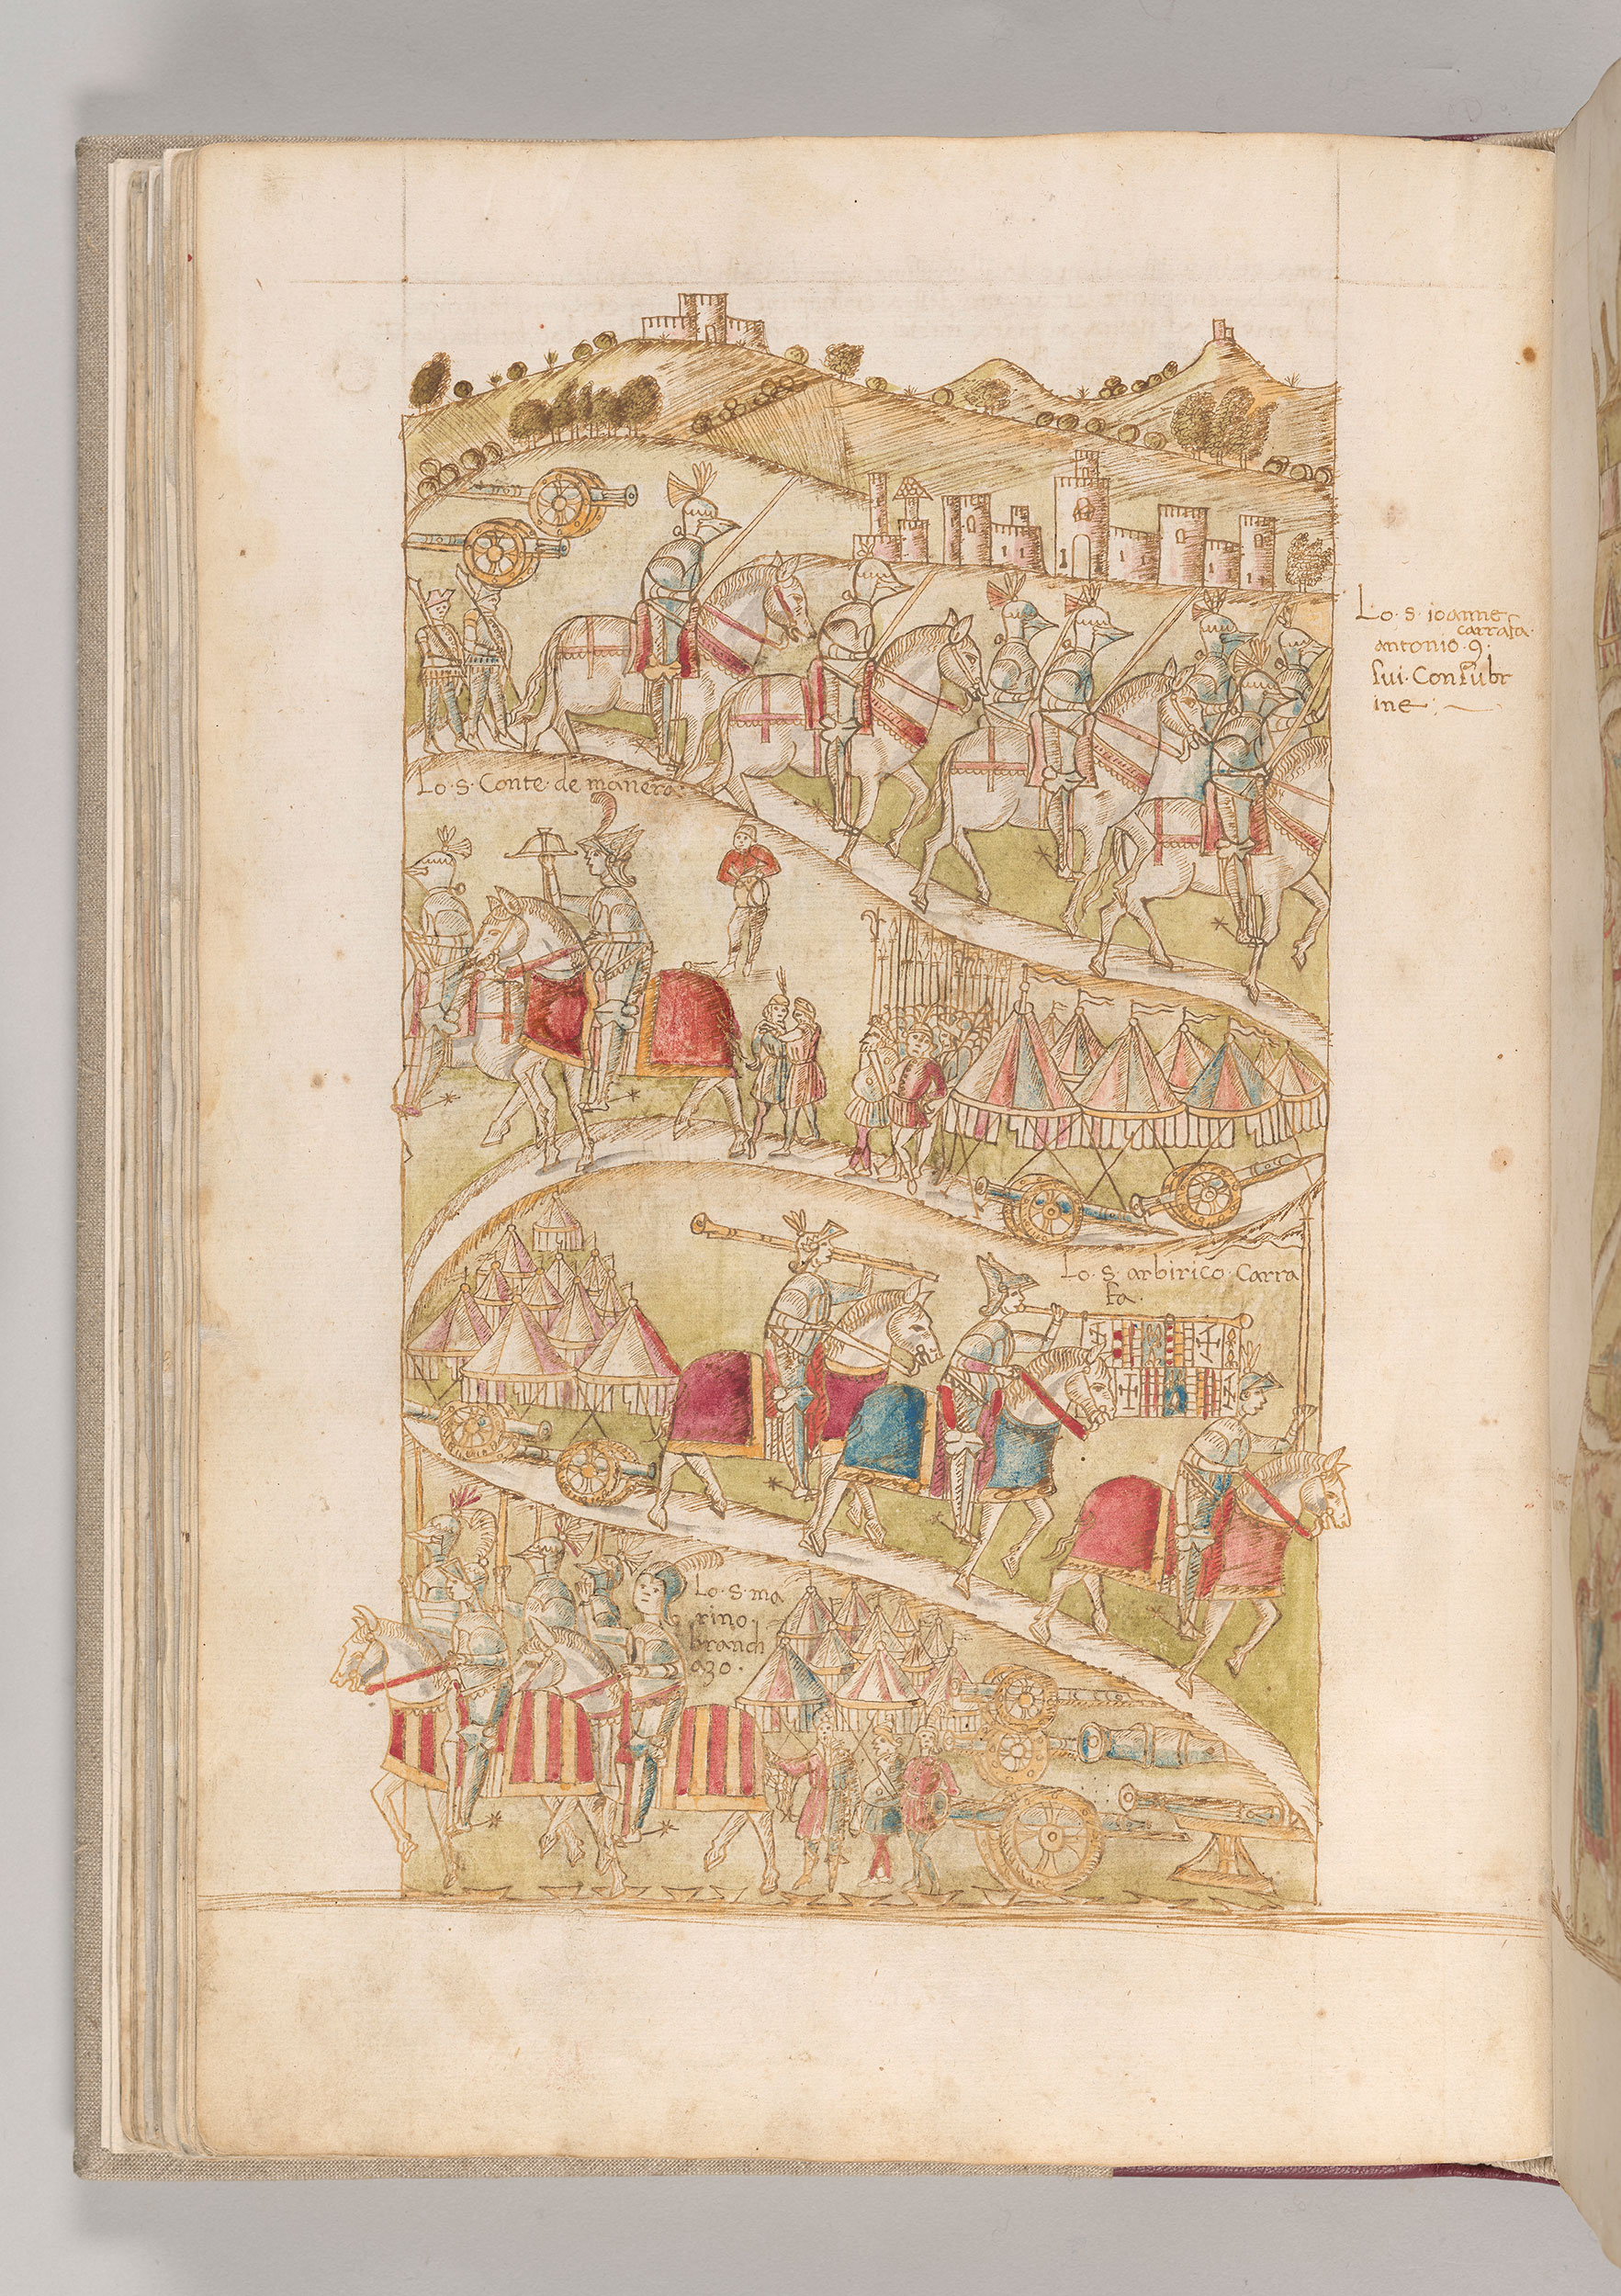 Lo·s·ioanne
carrafa·
antonio·9·
sui·Consubr
ine·
Lo·s·Conte·de manera·
Lo·s·arbirico·Carra
fa·
Lo·s·ma
rino·
branch
azo·